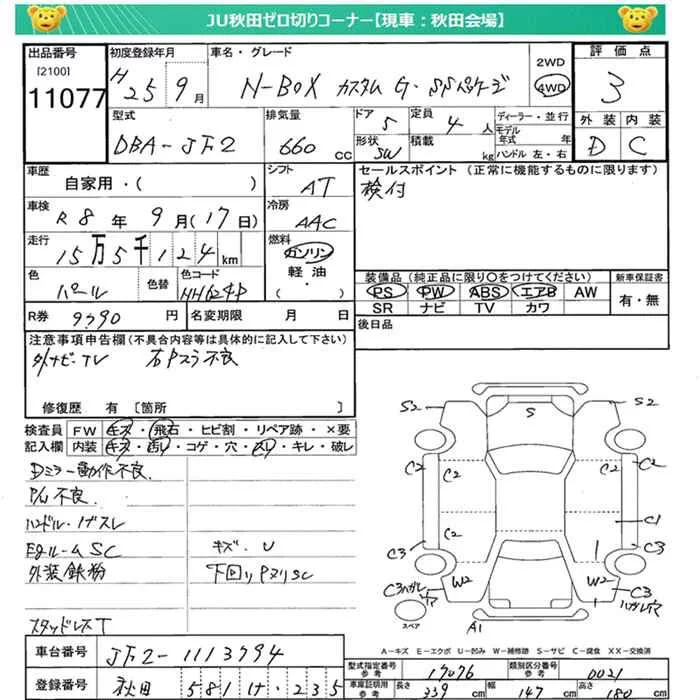 JU秋田ゼロ切りコーナー【現車:秋田会場】
出品番号
[2100]
11077
初度登録年月
H 25 9月
車名・グレード
N-BOX カスタム G・SSパッケージ
2WD
4WD
評価点
3
外装 内装
D C
型式
DBA-JF2
排気量
660 cc
ドア
5
定員
4人
形状
SW
積載
kg
ディーラー・並行
モデル年式 年
ハンドル 左・右
車歴
自家用・( )
シフト
AT
セールスポイント (正常に機能するものに限ります)
検付
車検
R 8年 9月(17日)
冷房
AAC
走行
15万5千124km
燃料
ガソリン
軽油・
( )
色
パール
色替
色コード
NH624P
装備品 (純正品に限り〇をつけてください)
PS PW ABS エアB AW
SR ナビ TV カワ
新車保証書
有・無
R券 9390円
名変期限 月 日
後日品
注意事項申告欄(不具合内容等は具体的に記入して下さい)
外ナビ・TV 右Pスラ不良
修復歴 有〔箇所 〕
検査員記入欄
FW キズ・飛石・ヒビ割・リペア跡・×要
内装 キズ・汚レ・コゲ・穴・スレ・キレ・破レ
Dミラー動作不良.
P/W不良.
ハンドル・ノブスレ
Egルーム SC
外装鉄粉
スタッドレスT
キズ・U
下回りPヌリSC
S2
S
S2
C2
C2
C2
C2
C2
C1
C3
C3
W2
W2
C3ハガレ
C3
スペア
A1
A-キズ E-エクボ U-凹み W-補修跡 S-サビ C-腐食 XX-交換済
車台番号
JF2-1113794
登録番号
秋田 581 け 235
型式指定番号 参考
17076
類別区分番号 参考
0021
車庫証明用 参考
長さ 339cm
幅 147cm
高さ 180cm